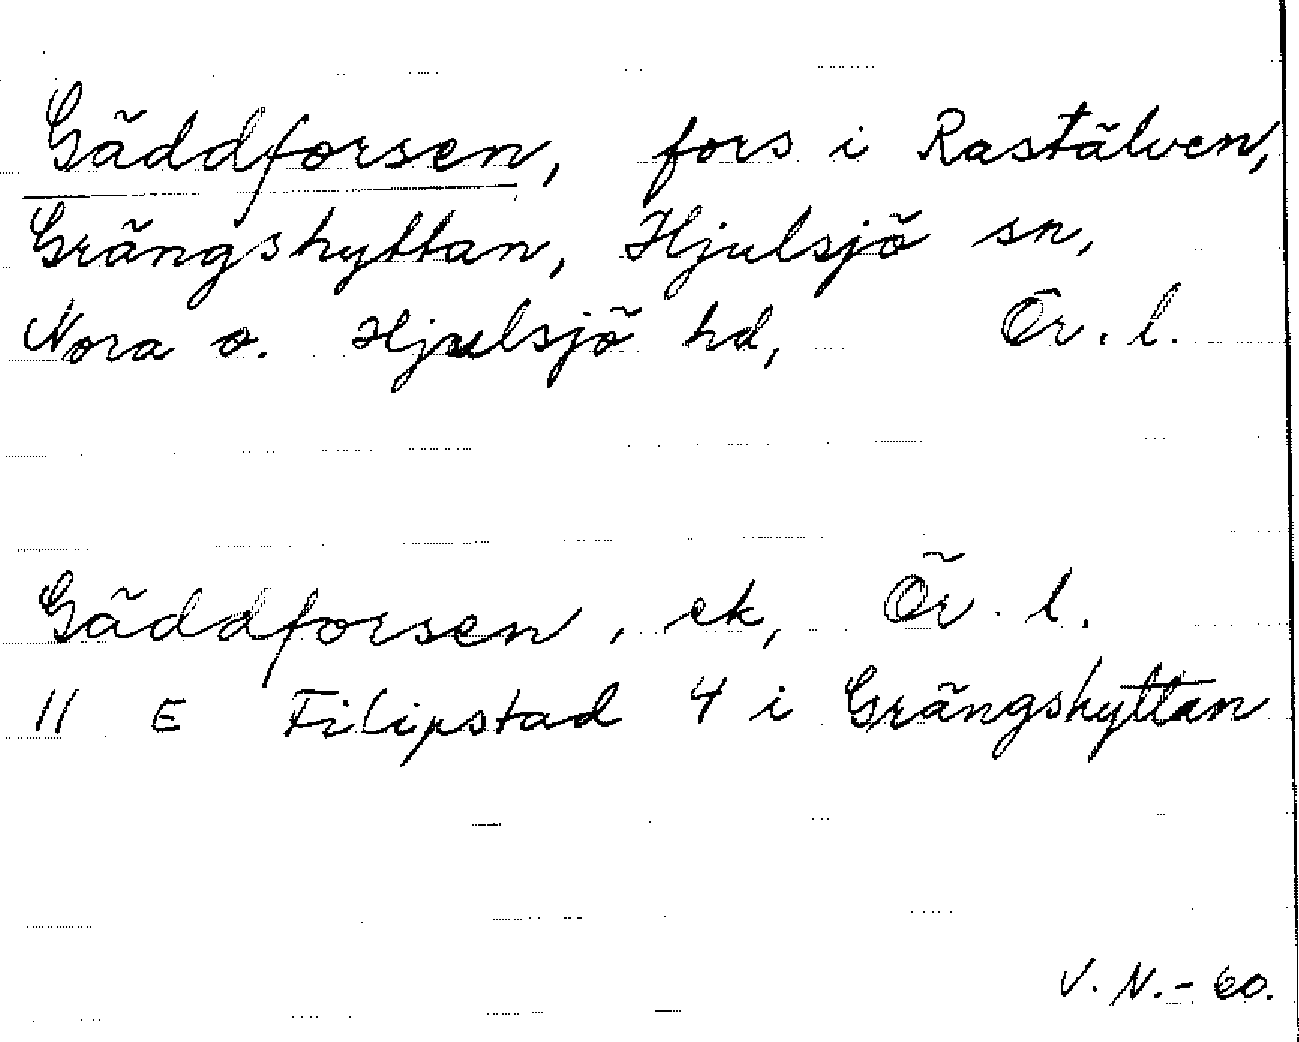 Gäddforsen, fors i Rastälven,
Grängshyttan, Hjulsjö sn,
Nora o. Hjulsjö hd, Ör. l.
Gäddforsen, ek, Ör. l.
11 E Filipstad 4 i Grängshyttan
V. N. - 60.